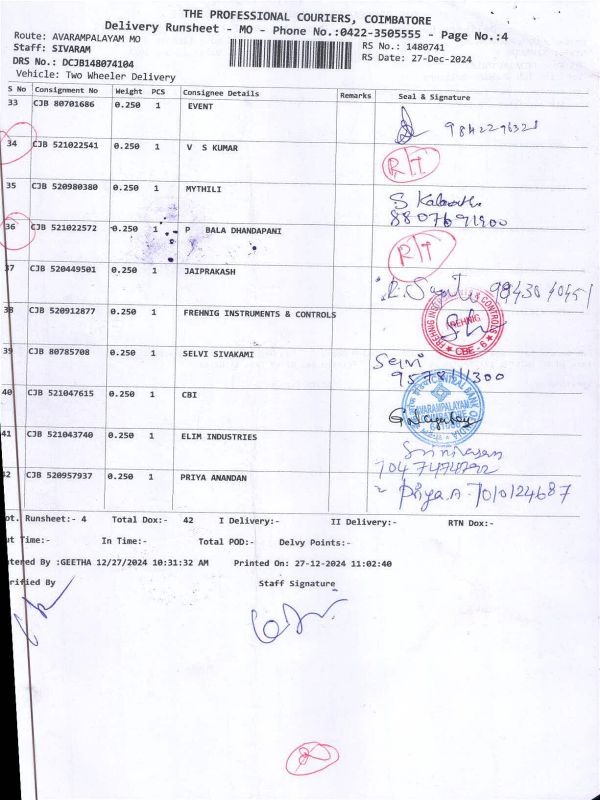 THE PROFESSIONAL COURIERS, COIMBATORE
Delivery Runsheet - MO - Phone No.:0422-3505555 - Page No.:4
Route: AVARAMPALAYAM MO
RS No.: 1480741
Staff: SIVARAM
RS Date: 27-Dec-2024
DRS No.: DCJB148074104
Vehicle: Two Wheeler Delivery
S No Consignment No Weight PCS Consignee Details Remarks Seal & Signature
33 CJB 80701686 0.250 1 EVENT
34 CJB 521022541 0.250 1 V S KUMAR R/T
35 CJB 520980380 0.250 1 MYTHILI
8807691900
36 CJB 521022572 0.250 1 P BALA DHANDAPANI R/T
37 CJB 520449501 0.250 1 JAIPRAKASH
38 CJB 520912877 0.250 1 FREHNIG INSTRUMENTS & CONTROLS FREHNIG CBE - 6
39 CJB 80785708 0.250 1 SELVI SIVAKAMI Selvi
9578111300
40 CJB 521047615 0.250 1 CBI CENTRAL BANK OF INDIA AVARAMPALAYAM
41 CJB 521043740 0.250 1 ELIM INDUSTRIES Srinivasan
42 CJB 520957937 0.250 1 PRIYA ANANDAN Priya.A - 7010124687
ot. Runsheet:- 4 Total Dox:- 42 I Delivery:- II Delivery:- RTN Dox:-
ut Time:- In Time:- Total POD:- Delvy Points:-
tered By :GEETHA 12/27/2024 10:31:32 AM Printed On: 27-12-2024 11:02:40
rified By Staff Signature